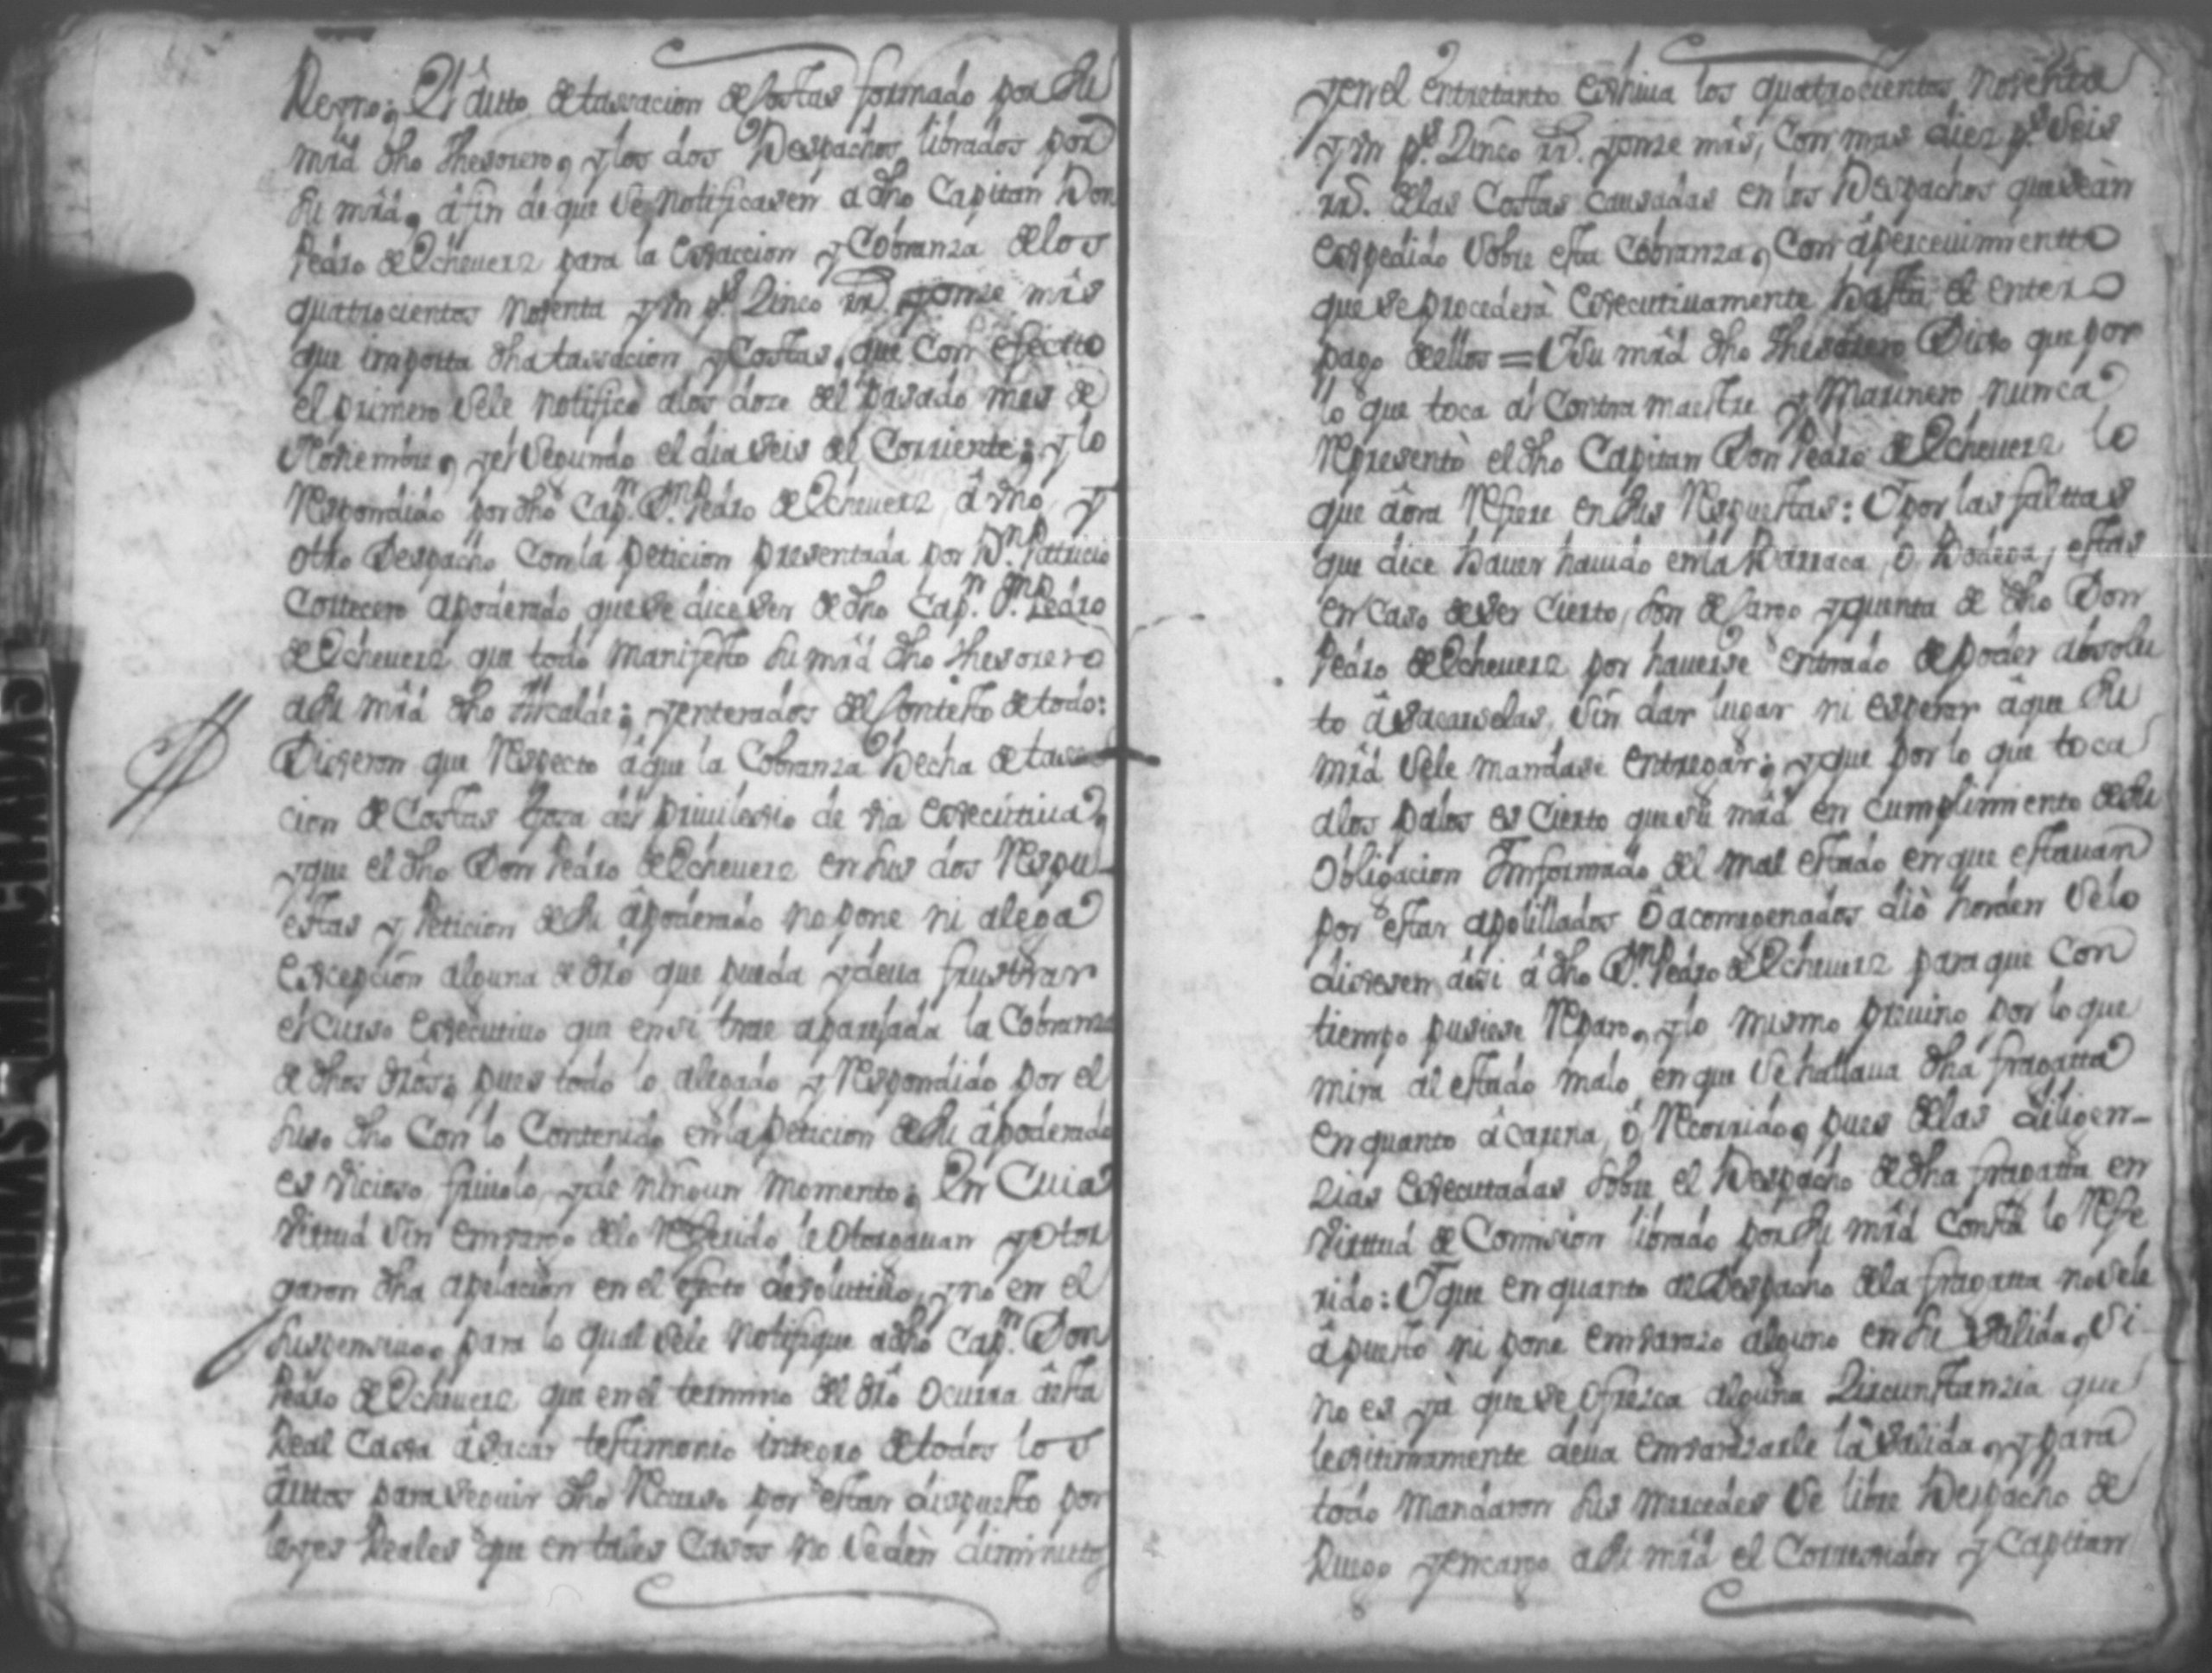 Reyno; El autto de tassacion de Costas formado por Su
mrd dho Thesorero, y los dos Despachos librados por
Su mrd, â fin de que se notificasen a dho Capitan Don
Pedro de Echeverz para la exaccion y Cobranza de los
quatrocientos noventa y un ps. Zinco rrs. y onze mrs
que importa dha tassacion y Costas, que Con efectto
el primero se le notificó a los doze del pasado mes de
Noviembre, y el segundo el dia seis del Corriente; y lo
Respondido por dho Capn. Dn. Pedro de Echeverz, â vno, y
otro Despacho Con la peticion presentada por Dn. Patricio
apoderado que se dice ser de dho Capn. Dn. Pedro
de Echeverz que todo manifesto Su mrd dho Thesorero
a Su mrd dho Alcalde; y enterados del Contexto de todo:
Dixeron que Respecto â que la Cobranza hecha de tassa
cion de Costas goza del privilexio de via executiva,
y que el dho Don Pedro de Echeverz en Sus dos Respu-
estas y Peticion de Su âpoderado no pone ni alega
Excepcion alguna de dro que pueda y deva frustrar
el Curso executivo que en si trae aparejada la Cobranza
de dhos dros, pues todo lo alegado y Respondido por el
Suso dho Con lo Contenido en la peticion de Su âpoderado
es vicioso, frivolo, y de ningun momento; En Cuia
virtud sin embargo de lo Referido le otorgavan y otor
garon dha apelacion en el efecto devolutivo, y no en el
Suspensivo, para lo qual se le notifique a dho Capn. Don
Pedro de Echeverz que en el termino del dro ocurra â esta
Real Caxa â sacar testimonio integro de todos los
âuttos para seguir dho Recurso por estar dispuesto por
leyes Reales que en tales Casos no se dèn diminutto
y en el entretanto exhiva los quatrocientos noventa
y un ps. Zinco rrs. y onze mrs, Con mas diez ps. seis
rrs. de las Costas causadas en los Despachos que se àn
expedido sobre esta Cobranza, Con âpercevimientto
que se procederà executivamente hasta el entero
pago dellos = Y Su mrd dho Thesorero Dixo que por
lo que toca al Contra maestre y Marinero nunca
Representò el dho Capitan Don Pedro de Echeverz lo
que âora Refiere en Sus Respuestas: Y por las falttas
que dice haver havido en la Barraca, ô Bodega, estas
en Caso de ser Cierto, son de Cargo y quenta de dho Don
Pedro de Echeverz por haverse entrado de poder absolu
to â sacarselas, sin dar lugar ni esperar â que Su
mrd se le mandase entregar; y que por lo que toca
a los palos es Cierto que su mrd en cumplimiento de Su
Obligacion Informado del mal estado en que estavan
por estar apolillados ô diò horden se lo
dixesen assi â dho Dn. Pedro de Echeverz para que Con
tiempo pusiese Reparo, y lo mismo previno por lo que
mira al estado malo en que se hallava dha fragatta
en quanto â carena, ô Recorrido, pues de las diligen-
zias executtadas sobre el Despacho de dha fragatta en
virttud de Comision librado por Su mrd Consta lo Refe
rido: Y que en quanto al Despacho de la fragatta no se le
â puesto ni pone embarazo alguno en Su salida, si
no es yà que se ofrezca alguna Zircunstanzia que
lexitimamente deva embarazarle la salida, y para
todo mandaron Sus mercedes se libre Despacho de
Ruego y encargo a Su mrd el Correxidor y Capitan